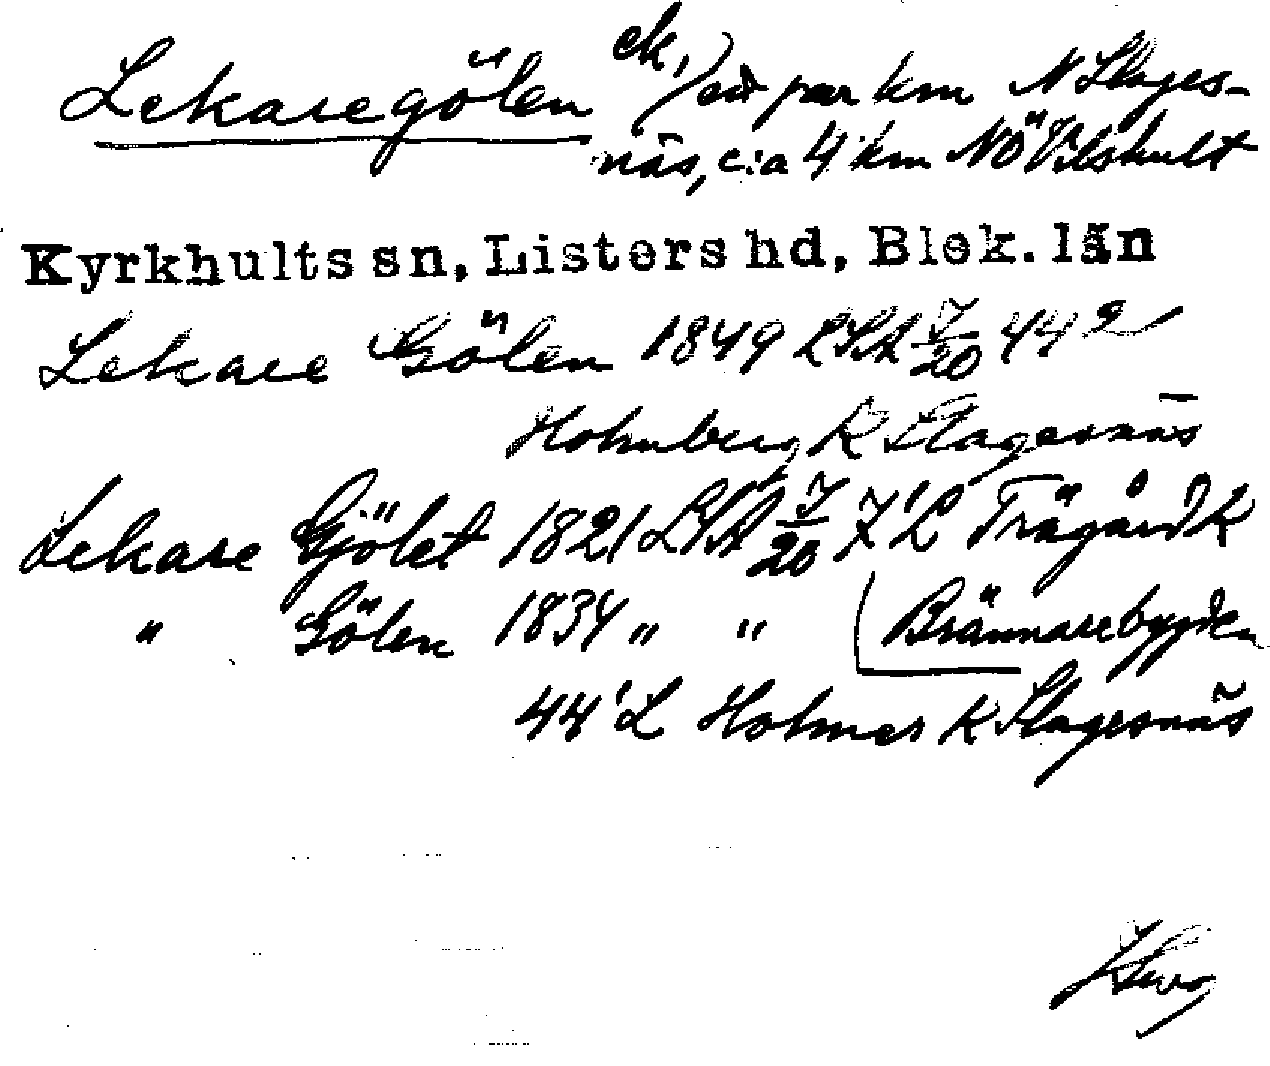 Lekaregölen ek, ett par km N Slages-
näs, c:a 4 km NÖ Vilshult
Kyrkhults sn, Listers hd, Blek. län
Lekare Gölen 1849 LSA 7/20 44 2
Holmberg K Slagesnäs
Lekare Gjölet 1821 LSA 7/20 7'L Trägård K
" Gölen 1834 " " Brännarebygden
44'L Holmer K Slagesnäs